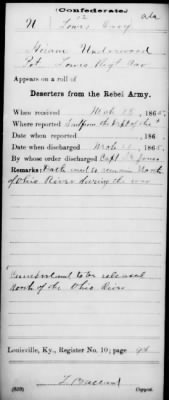 (Confederate.)
12 Ala
U Lewis Cavy
Hiram Underwood
Pvt Lewis Regt Cav
Appears on a roll of
Deserters from the Rebel Army.
When received Mch 1865.
Where reported Dept of the
Date when reported , 186 .
Date when discharged Mch , 1865.
By whose order discharged Capt Jones
Remarks: Oath and to remain North
of Ohio River during the war
to be released
North of the Ohio River
Louisville, Ky., Register No. 10; page 94
(639) Copyist.